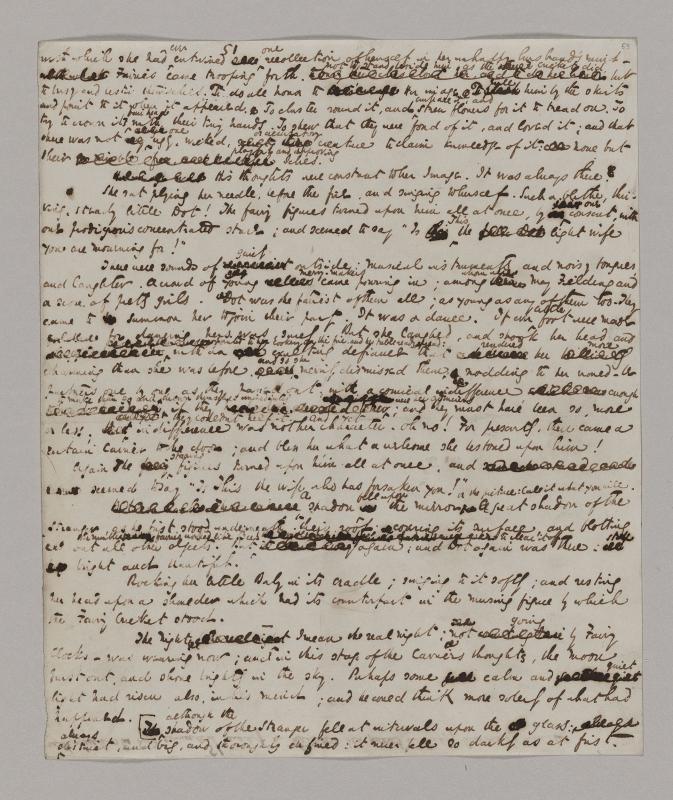 51
with which she had entwined one recollection of herself in her unhappy husband's mind
Fairies came trooping forth. Not to stand round him as the Cricket did but
to busy and bestir themselves. To do all honor to her image. To pull him by the skirts
and point to it when it appeared. To cluster round it, and embrace it, and strew flowers for it to tread on. To
try to crown its fair head with their tiny hands. To shew that they were fond of it, and loved it; and that
there was not one ugly, wicked, or accusatory creature to claim knowledge of it: none but
their playful and approving selves.
His thoughts were constant to her Image. It was always there.
She sat plying her needle, before the fire, and singing to herself. Such a blithe, thri-
ving, steady little Dot! The fairy figures turned upon him all at once, by one consent, with
one prodigious concentrated stare; and seemed to say "Is this the light wife
you are mourning for!"
There were sounds of gaiety outside: musical instruments, and noisy tongues
and laughter. A crowd of young merry-makers came pouring in; among whom were May Fielding and
a score of pretty girls. Dot was the fairest of them all; as young as any of them too. They
came to summon her to join their party. It was a dance. If ever little foot were made
for dancing, hers was, surely. But she laughed, and shook her head, and
pointed to her cookery on the fire, and her table ready spread: with an exulting defiance that rendered her more
charming than she was before. And so she merrily dismissed them: nodding to her
one by one as they passed out, with a comical indifference enough
to make them go and drown themselves immediately if they were her admirers; and they must have been so, more
or less; they couldn't help it. And yet indifference was not her character. Oh no! For presently, there came a
certain Carrier to the door; and bless her what a welcome she bestowed upon him!
Again the staring figures turned upon him all at once, and
seemed to say "Is this the wife who has forsaken you!"
A shadow fell upon the mirror or the picture: call it what you will. A great shadow of the
Stranger, as he first stood underneath their roof; covering its surface, and blotting
out all other objects. But the nimble fairies worked like Bees to clear it off again; and Dot again was there: still
bright and beautiful.
Rocking her little Baby in its cradle; singing to it softly; and resting
her head upon a shoulder which had its counterpart in the musing figure by which
the Fairy Cricket stood.
The night—I mean the real night: not going by Fairy
Clocks—was wearing now; and in this stage of the Carrier's thoughts, the moon
burst out, and shone brightly in the sky. Perhaps some calm and quiet
light had risen also, in his mind; and he could think more soberly of what had
happened.
Although the shadow of the Stranger fell at intervals upon the glass: always
distinct, and big, and thoroughly defined: it never fell so darkly as at first.